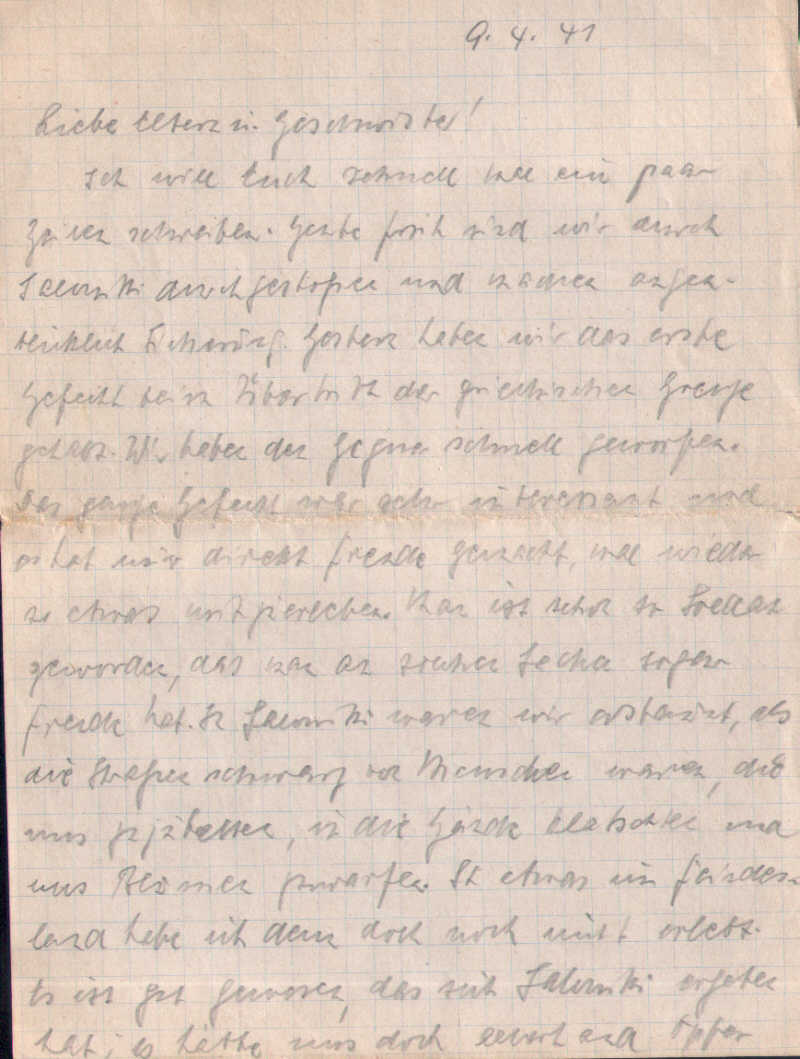 9. 4. 41
Liebe Eltern u. Geschwister!
Ich will Euch schnell mal ein paar
Zeilen schreiben. Heute früh sind wir durch
Saloniki durchgestoßen und machen augen-
blicklich Sicherung. Gestern haben wir das erste
Gefecht beim Übertritt der griechischen Grenze
gehabt. Wir haben den Gegner schnell geworfen.
Das ganze Gefecht war sehr interessant und
es hat mir direkt Freude gemacht, mal wieder
so etwas mitzuerleben. Man ist schon so Soldat
geworden, das man an solchen Sachen sogar
Freude hat. In Saloniki waren wir erstaunt, als
die Straßen schwarz von Menschen waren, die
uns zujubelten, in die Hände klatschten und
uns Blumen zuwarfen. So etwas im Feindes-
land habe ich denn doch noch nicht erlebt.
Es ist gut gewesen, das sich Saloniki ergeben
hat, es hätte uns doch allerhand Opfer